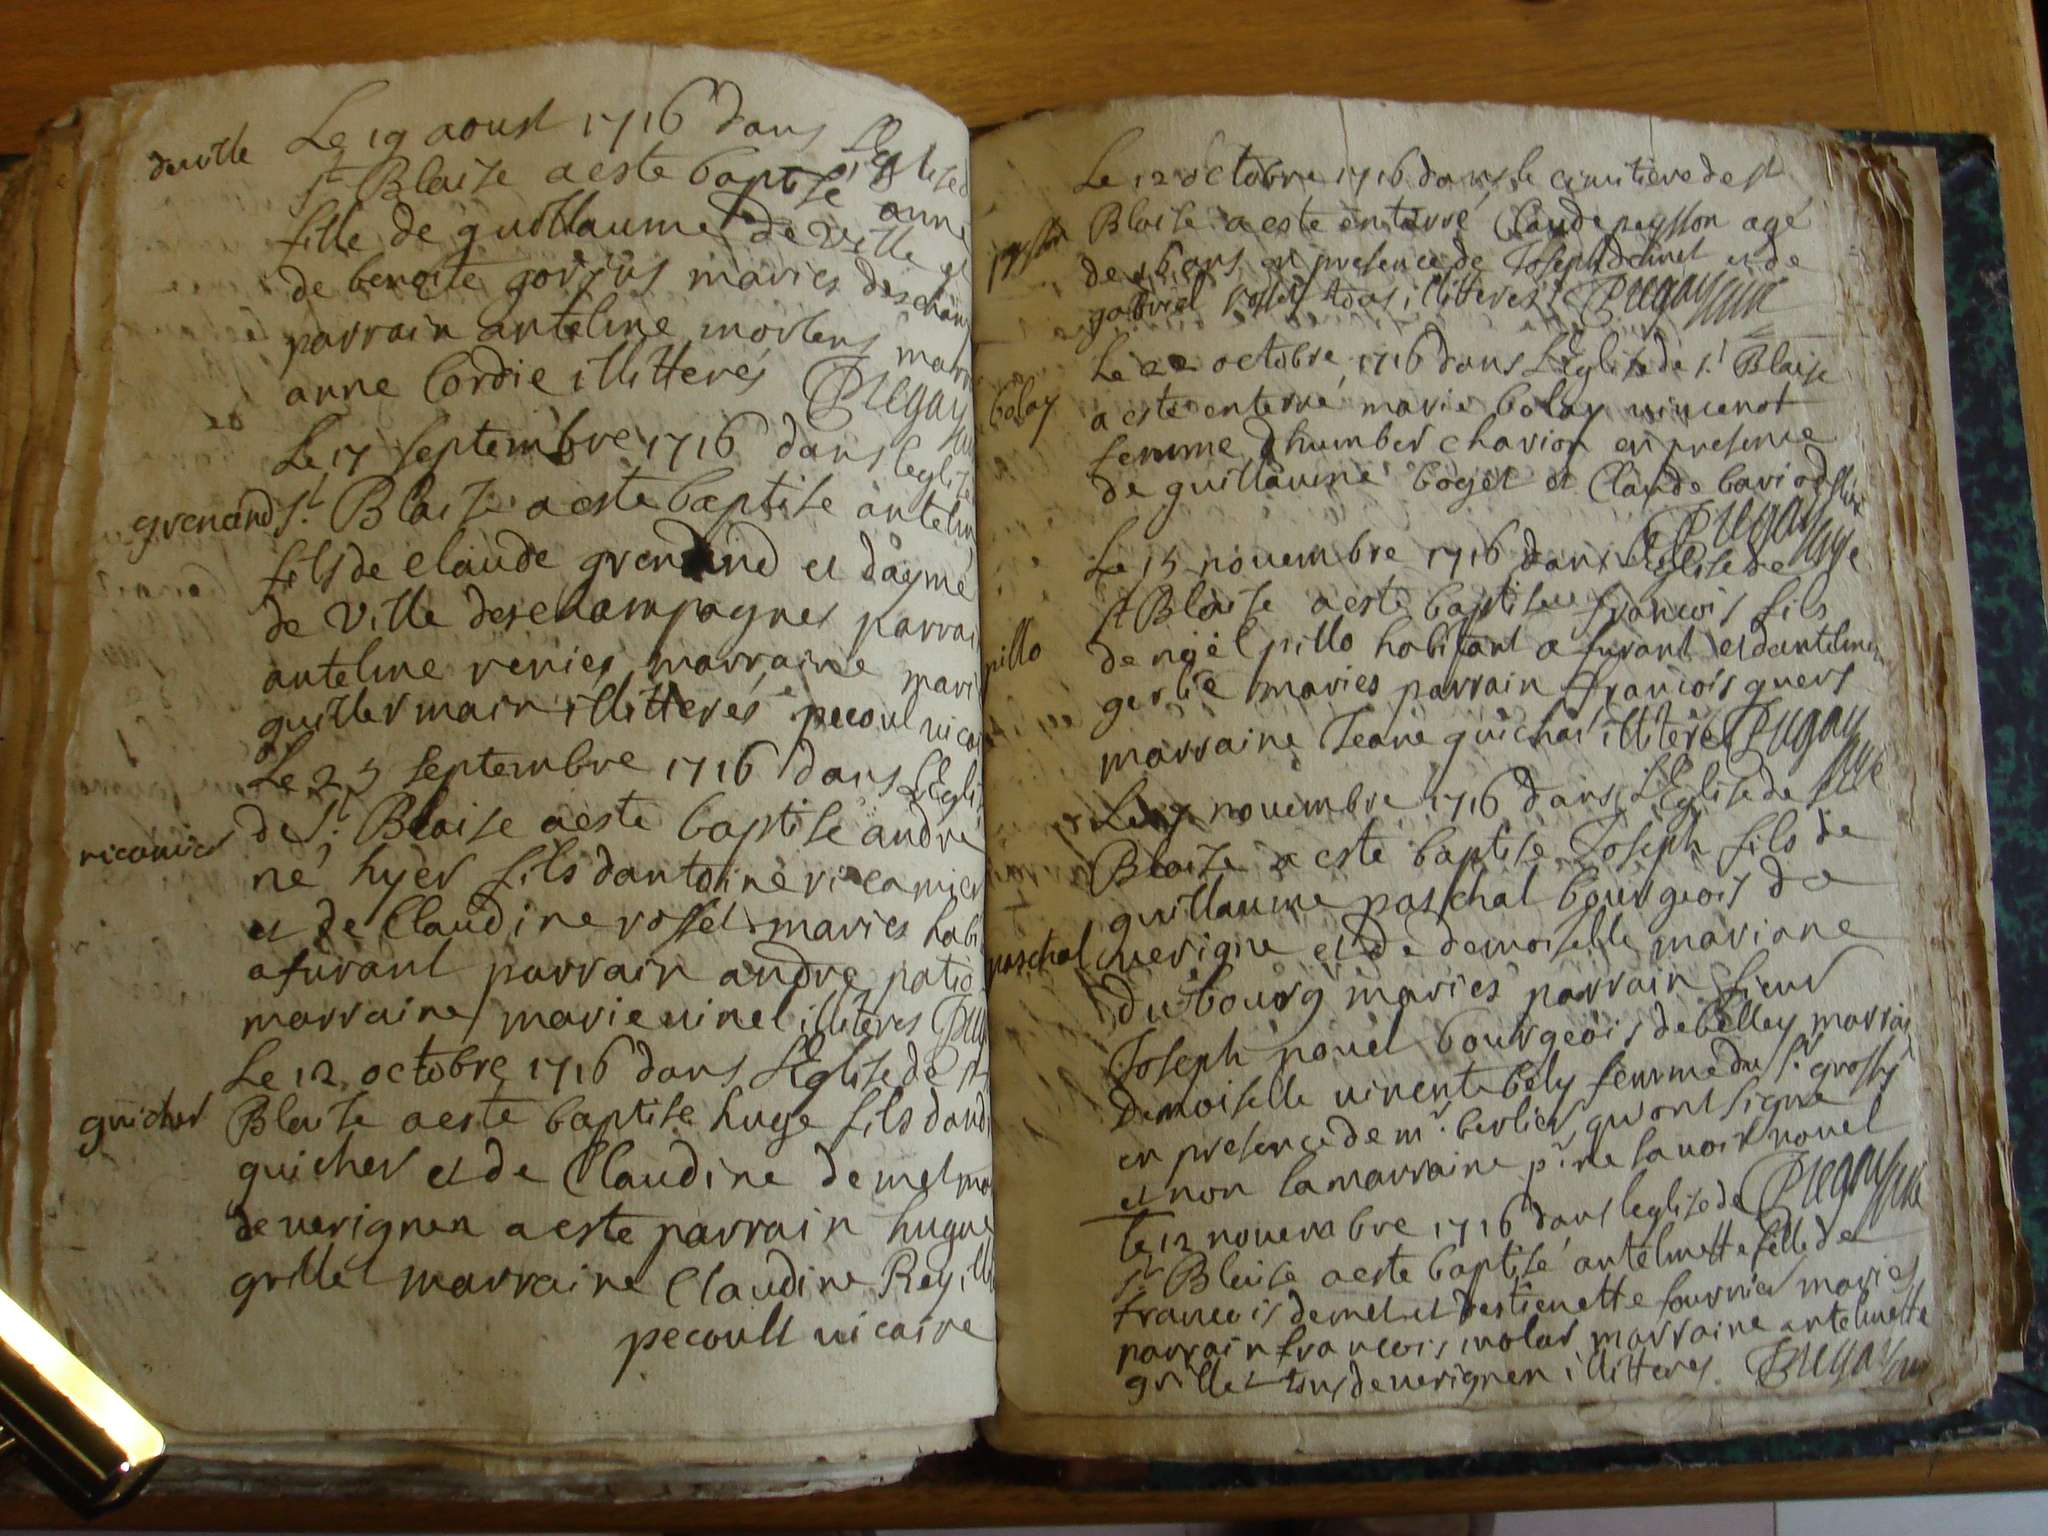 deville
Le 19 aoust 1716 dans
st Blaise a esté baptisé anne
fille de guillaume de ville et
de benoite gorjus maries descham
parrain antelme mortens marr
anne Cordie illitterés
Le 17 septembre 1716 dans leglise
grenand
st. Blaise a esté baptise antelm
fils de claude grenand et daymé
de ville deschampagnes parrai
antelme marraine mari
guillermain illitterés pecoul vica
Le 25 septembre 1716 dans LEgli
ricamier
de st. Blaise a esté baptisé andre
né hyer fils dantoine ricamier
et de Claudine rosset maries habi
a furant parrain andre
marraine marie vinel illiteres
Le 12 octobre 1716 dans LEglise de st
guicher
Blaise a este baptise huge fils dand
guicher et de Claudine demel ma
de verignen a este parrain hugue
grillet marraine Claudine Rey illi
pecoult vicaire
Le 12 octobre 1716 dans le cimitiere de st
Blaise a este enterré Claude peysson agé
de ans en presence de Joseph demel et de
gabriel rosset tous illitteres
Le 22 octobre 1716 dans LEglise de st Blaise
bolay
a esté enterré marie bolay vincenot
femme dhumber charion en presence
de guillaume boget et Claude bariod
Le 15 novembre 1716 dans LEglise de
st Blaise a esté baptisee francois fils
pillo
de pillo habitant a furant et dantelme
gerlie maries parrain francois guers
marraine Jeane guichar illiteré
Le novembre 1716 dans LEglise de st
Blaise a esté baptisé Joseph fils de
guillaume paschal bourgeois de
paschal
verigne et de demoiselle mariane
du bourg mariés parrain sieur
Joseph novel bourgeois de belley marrai
demoiselle vincente bely femme du Sr. grossy
en presence de mr. berlier qui ont signé
et non la marraine pr. ne savoir novel
le 12 novembre 1716 dans leglise de
st Blaise a este baptisé antelmette fille de
francois demel et destienette fournier maries
parrain francois molar marraine antelmette
grillet tous de verignen illitteres